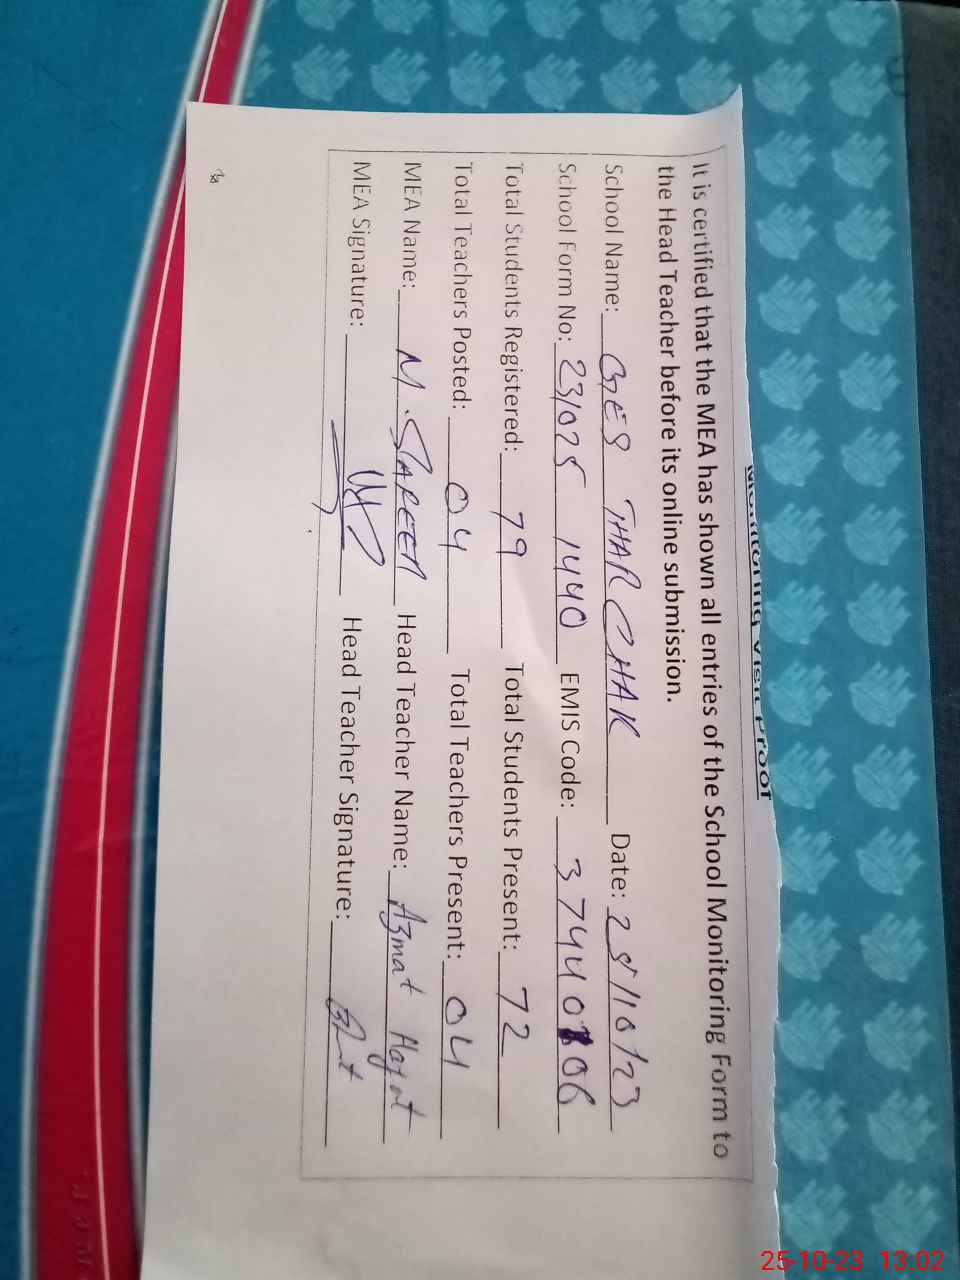 Monitoring Visit Proof
It is certified that the MEA has shown all entries of the School Monitoring Form to
the Head Teacher before its online submission.
School Name: GES THAR CHAK Date: 25/10/23
School Form No: 231025 1440 EMIS Code: 37440106
Total Students Registered: 79 Total Students Present: 72
Total Teachers Posted: 04 Total Teachers Present: 04
MEA Name: M. SAREER Head Teacher Name: Azmat Hayat
MEA Signature: Head Teacher Signature:
25-10-23 13:02